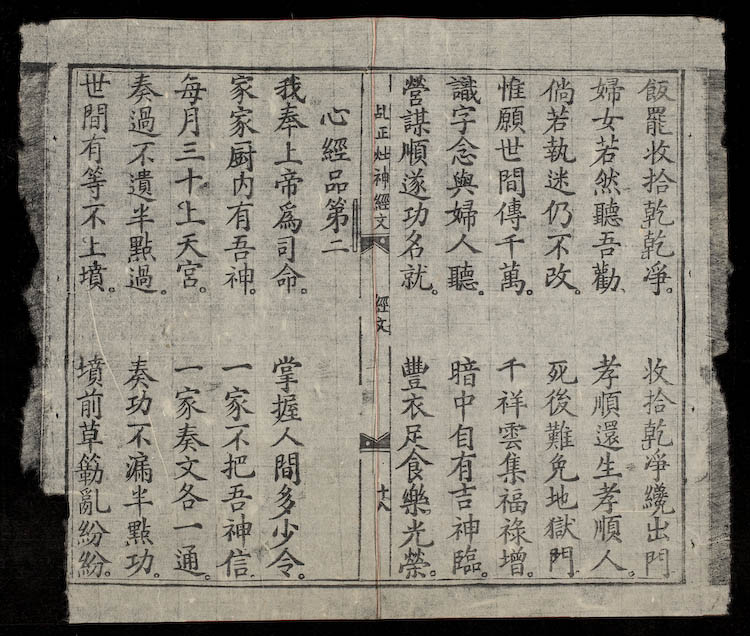 飯罷收拾乾乾凈。 收拾乾凈纔出門
婦女若然聽吾勸 孝順還生孝順人。
倘若執迷仍不改。 死後難免地獄門
惟願世間傳千萬。 千祥雲集福祿增。
識字念與婦人聽。 暗中自有吉神臨。
營謀順遂功名就。 豐衣足食樂光榮。
乩正灶神經文 經文 十八
心經品第二
我奉上帝爲司命。 掌握人間多少令。
家家厨内有吾神。 一家不把吾神信
每月三十上天宮。 一家奏文各一通。
奏過不遺半點過。 奏功不漏半點功。
世間有等不上墳。 墳前草簕亂紛紛。